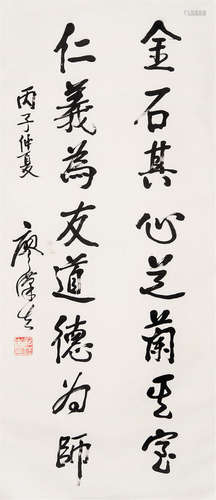 金石其心芝蘭其室
仁義為友道德为師
丙子仲夏
廖漢生